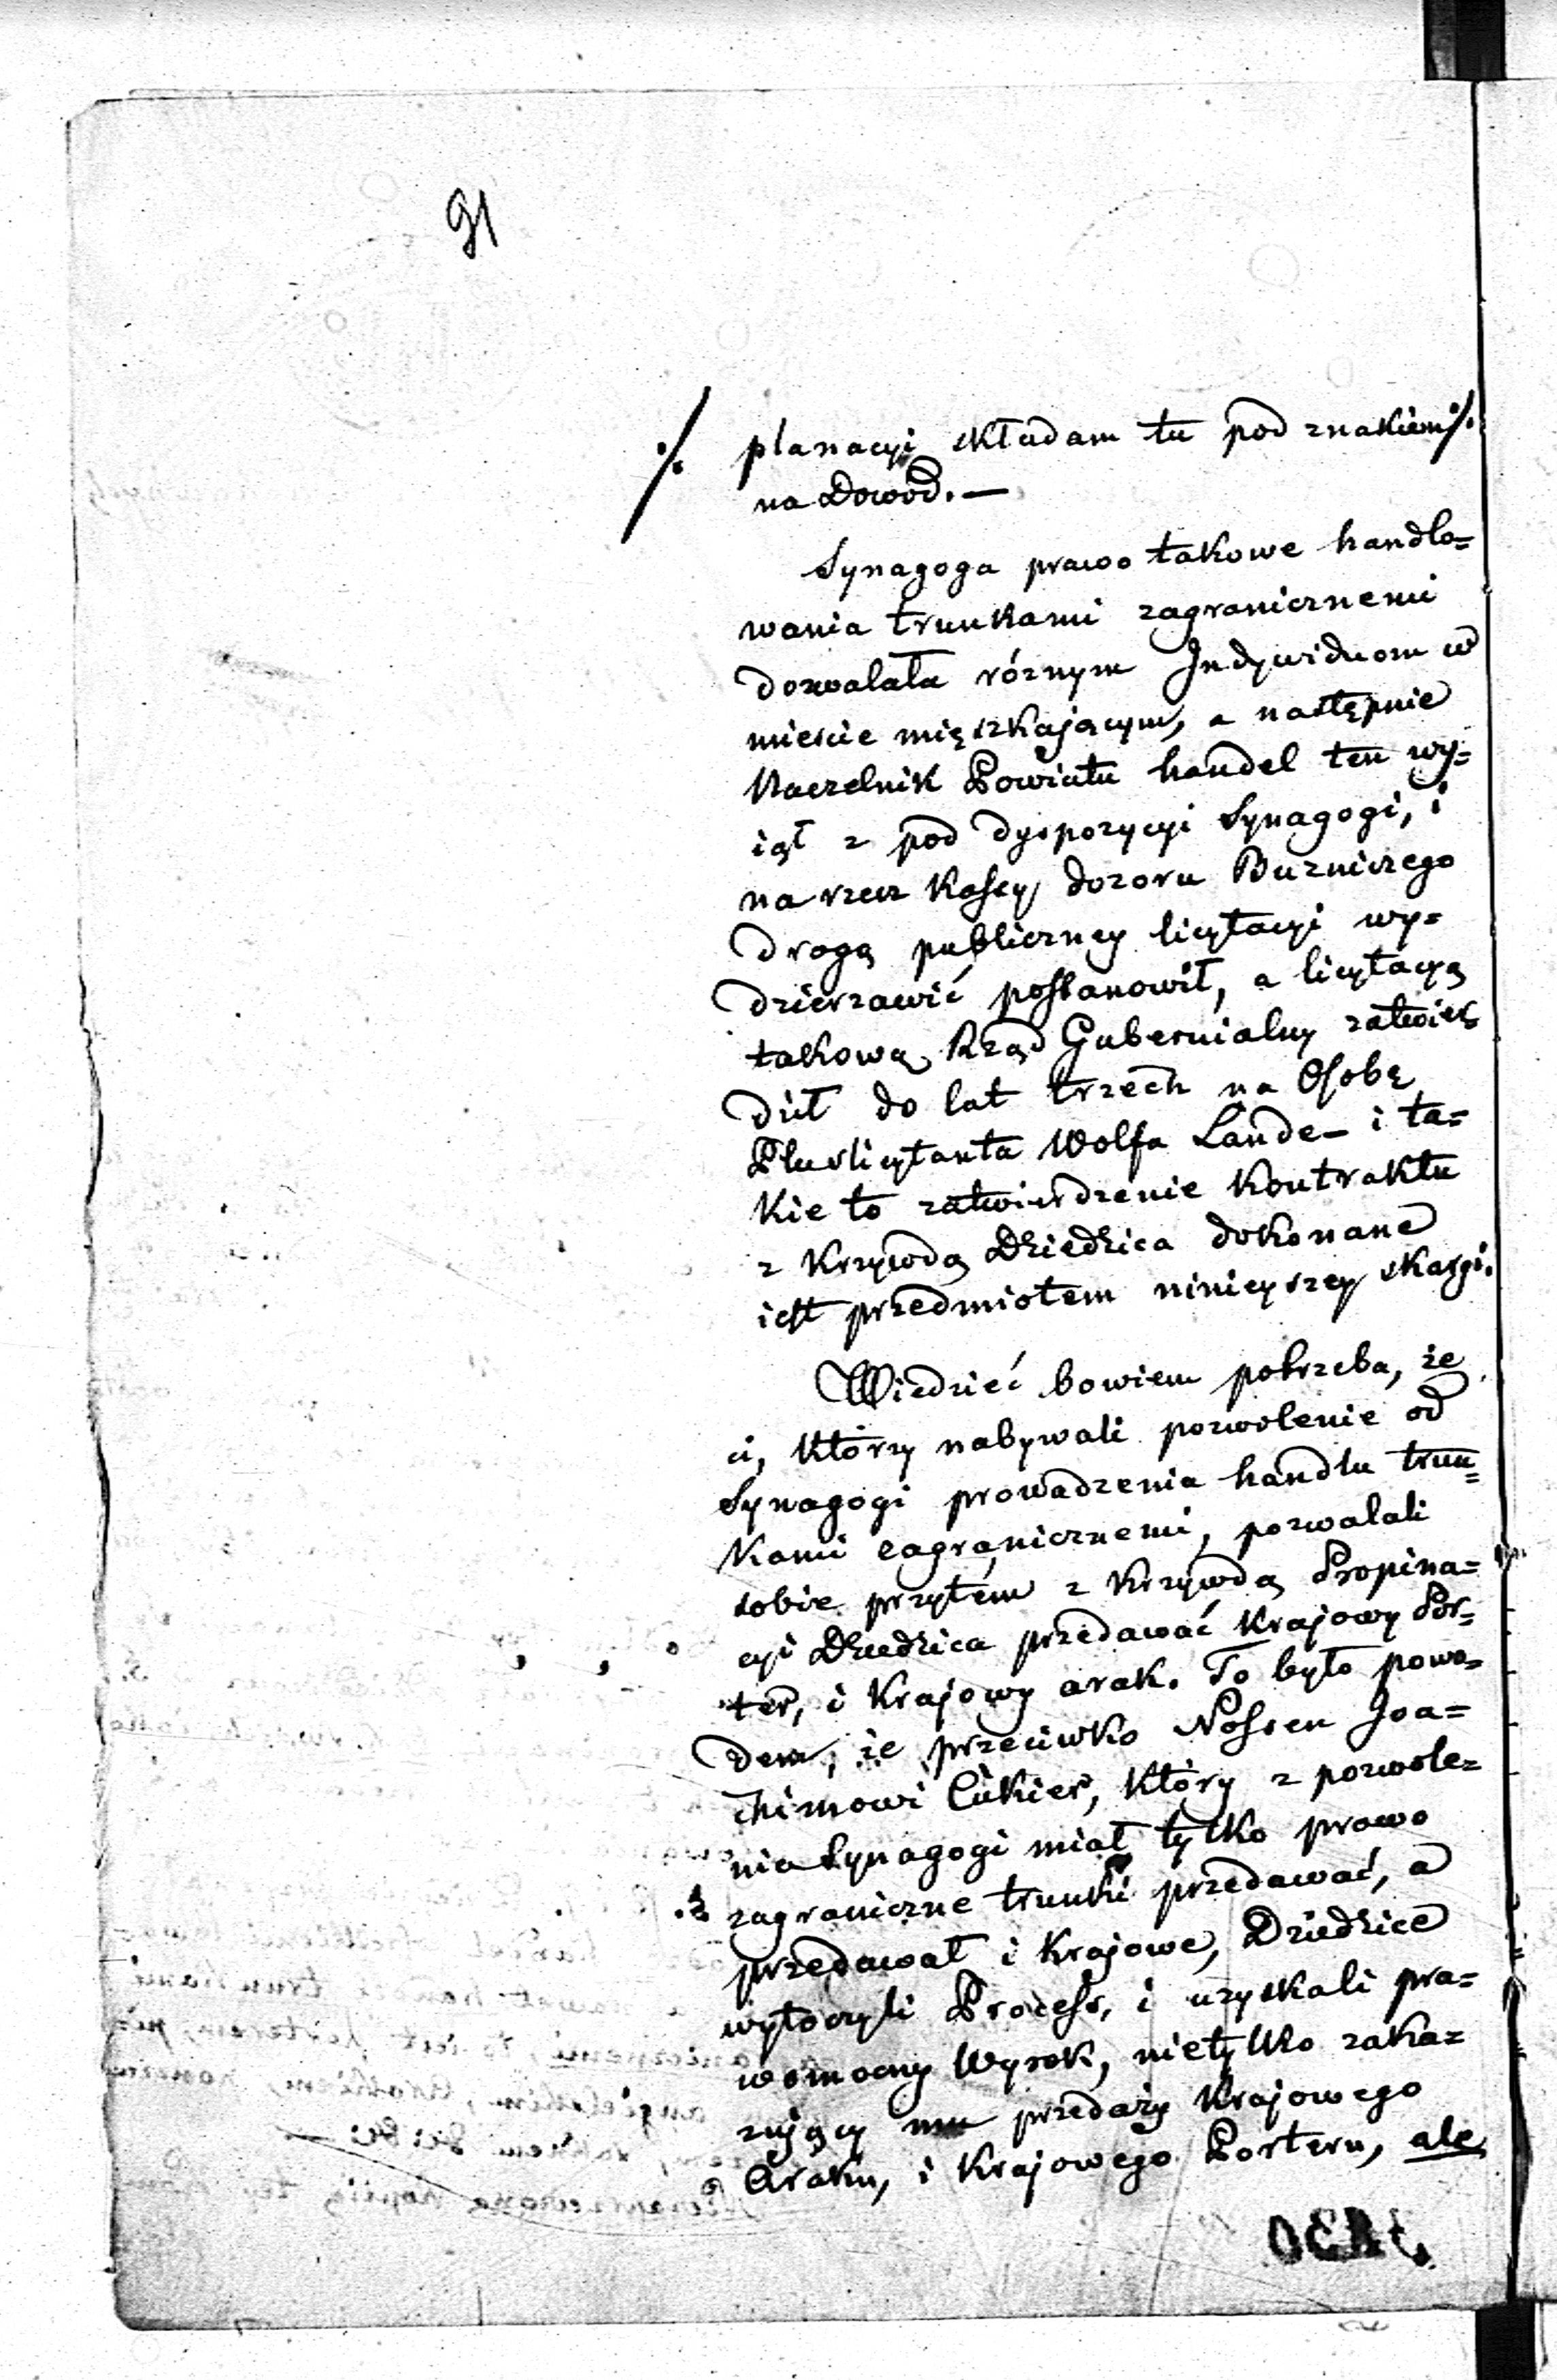 91
./. planacyi składam tu pod znakiem ./.
na Dowód. —
Synagoga prawo takowe handlo=
wania trunkami zagranicznemi
dozwalała róznym Indywiduom w
miescie mięszkającym, a następnie
Naczelnik Powiatu handel ten wy=
iął z pod dyspozycyi Synagogi, i
na rzecz Kassy dozoru Buzniczego
drogą publiczney licytacyi wy=
dzierzawić postanowił, a licytacyą
takową Rząd Gubernialny zatwier=
dził do lat trzech na Osobę
Pluslicytanta Wolfa Lande — i ta=
kie to zatwierdzenie Kontraktu
z Krzywdą Dziedzica dokonane
iest przedmiotem ninieyszey skargi.
Wiedzieć bowiem potrzeba, że
ci, Którzy nabywali pozwolenie od
Synagogi prowadzenia handlu trun=
kami zagranicznemi, pozwalali
sobie przytém z Krzywdą Propina=
cyi Dziedzica przedawać Krajowy Por=
ter, i Krajowy arak. To było powo=
dem, że przeciwko Nossen Joa=
chimowi Cukier, Który z pozwole=
nia Synagogi miał tylko prawo
zagraniczne trunki przedawać, a
przedawał i Krajowe, Dziedzice
wytoczyli Process, i uzyskali pra=
womocny Wyrok, nietylko zaka=
zujący mu przedaży Krajowego
Araku, i Krajowego Porteru, ale